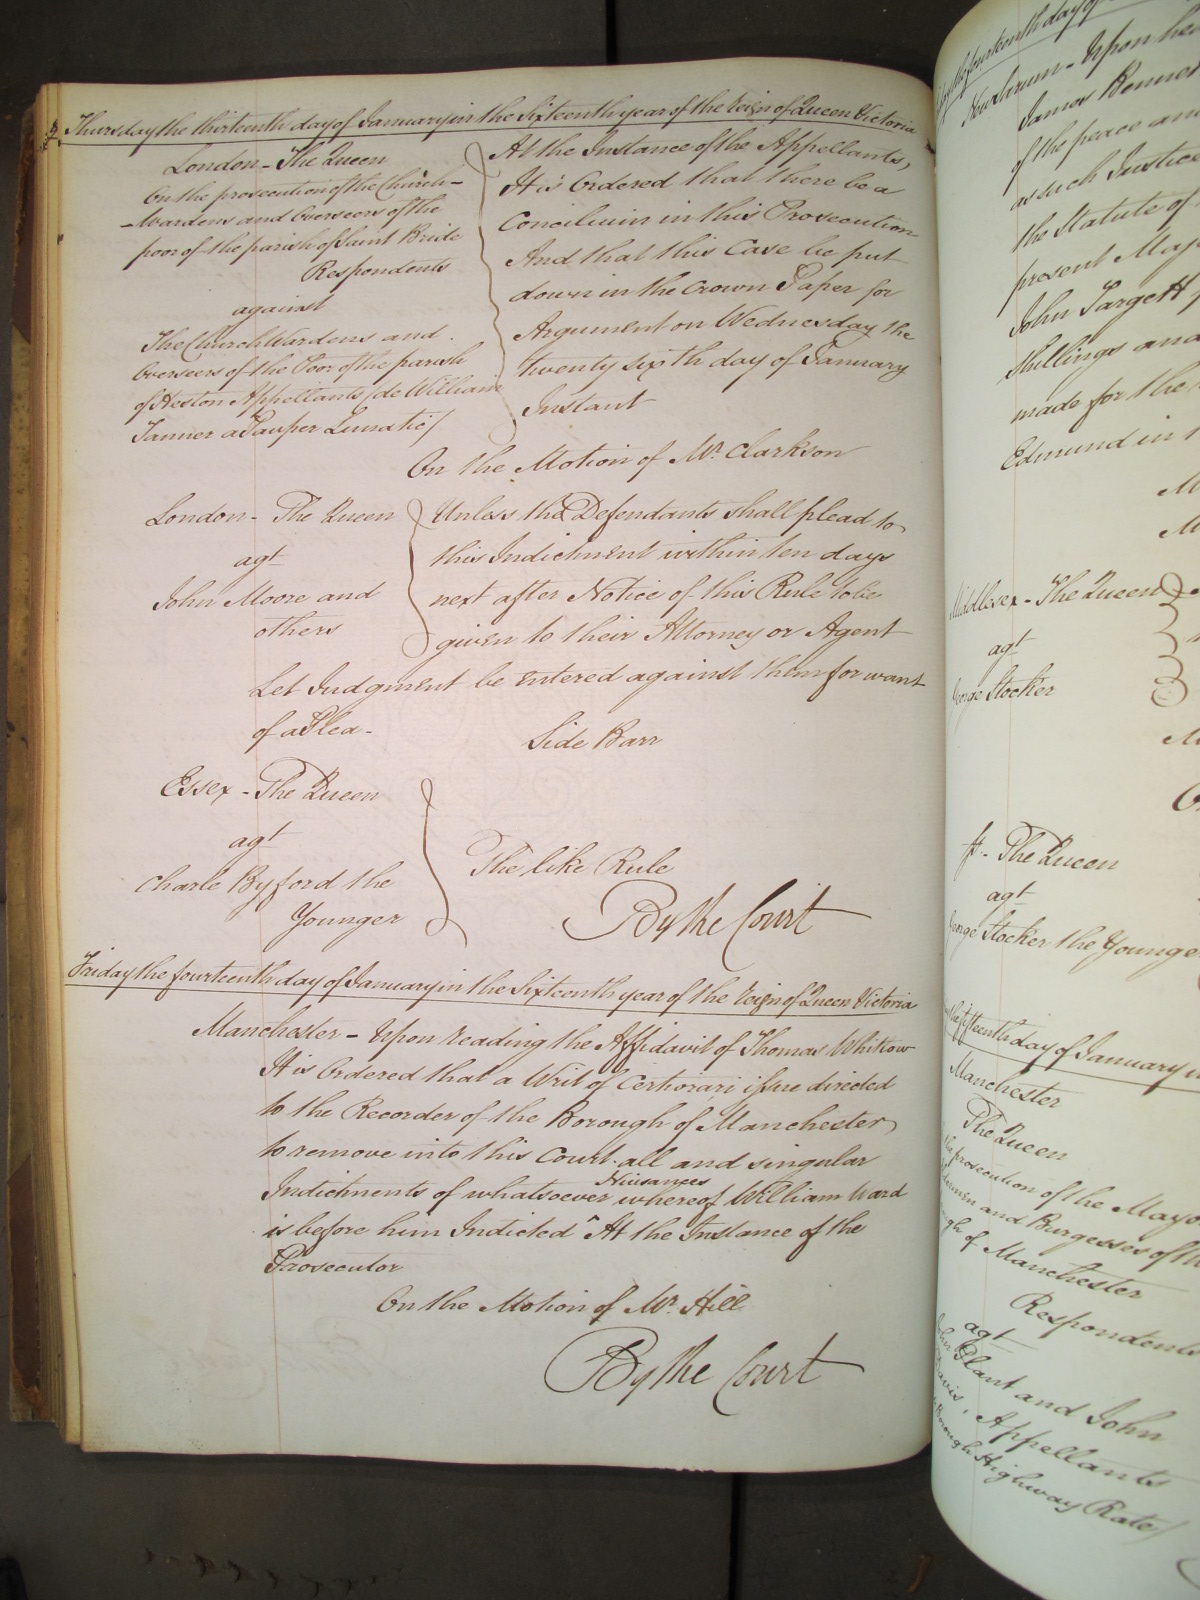 Thursday the thirteenth day of January in the Sixteenth year of the Reign of Queen Victoria
London - The Queen
On the prosecution of the Church-
-Wardens and Overseers of the
poor of the parish of Saint Bride
Respondents
against
The Church Wardens and
Overseers of the Poor of the parish
of Heston Appellants (de William
Tanner a Pauper Lunatic)
At the Instance of the Appellants,
It is Ordered that there be a
Concilium in this Prosecution
And that this Case be put
down in the Crown Paper for
Argument on Wednesday the
twenty sixth day of January
Instant
On the Motion of Mr. Clarkson
London - The Queen
agt
John Moore and
others
Unless the Defendants shall plead to
this Indictment within ten days
next after Notice of this Rule to be
given to their Attorney or Agent
Let Judgment be entered against them for want
of a Plea -
Side Barr
Essex - The Queen
agt
Charle Byford the
Younger
The like Rule
By the Court
Friday the fourteenth day of January in the Sixteenth year of the Reign of Queen Victoria
Manchester - Upon reading the Affidavit of Thomas Whittow
It is Ordered that a Writ of Certiorari issue directed
to the Recorder of the Borough of Manchester,
to remove into this Court all and singular
Indictments of whatsoever Nuisances whereof William Ward
is before him Indicted ^ At the Instance of the
Prosecutor
On the Motion of Mr. Hill
By the Court
the fourteenth day of
- Upon hea
James Bennet
of the peace and
as such Justice
the Statute of
present May
John Targett
Shillings and
made for the
Edmund in
Middlesex - The Queen
agt
George Stocker
The Queen
agt
George Stocker the Younge
the fifteenth day of January
Manchester
The Queen
the prosecution of the Mayo
and Burgesses of th
of Manchester
Respondents
agt
John Plant and John
Davis, Appellants
Borough Highway Rate)